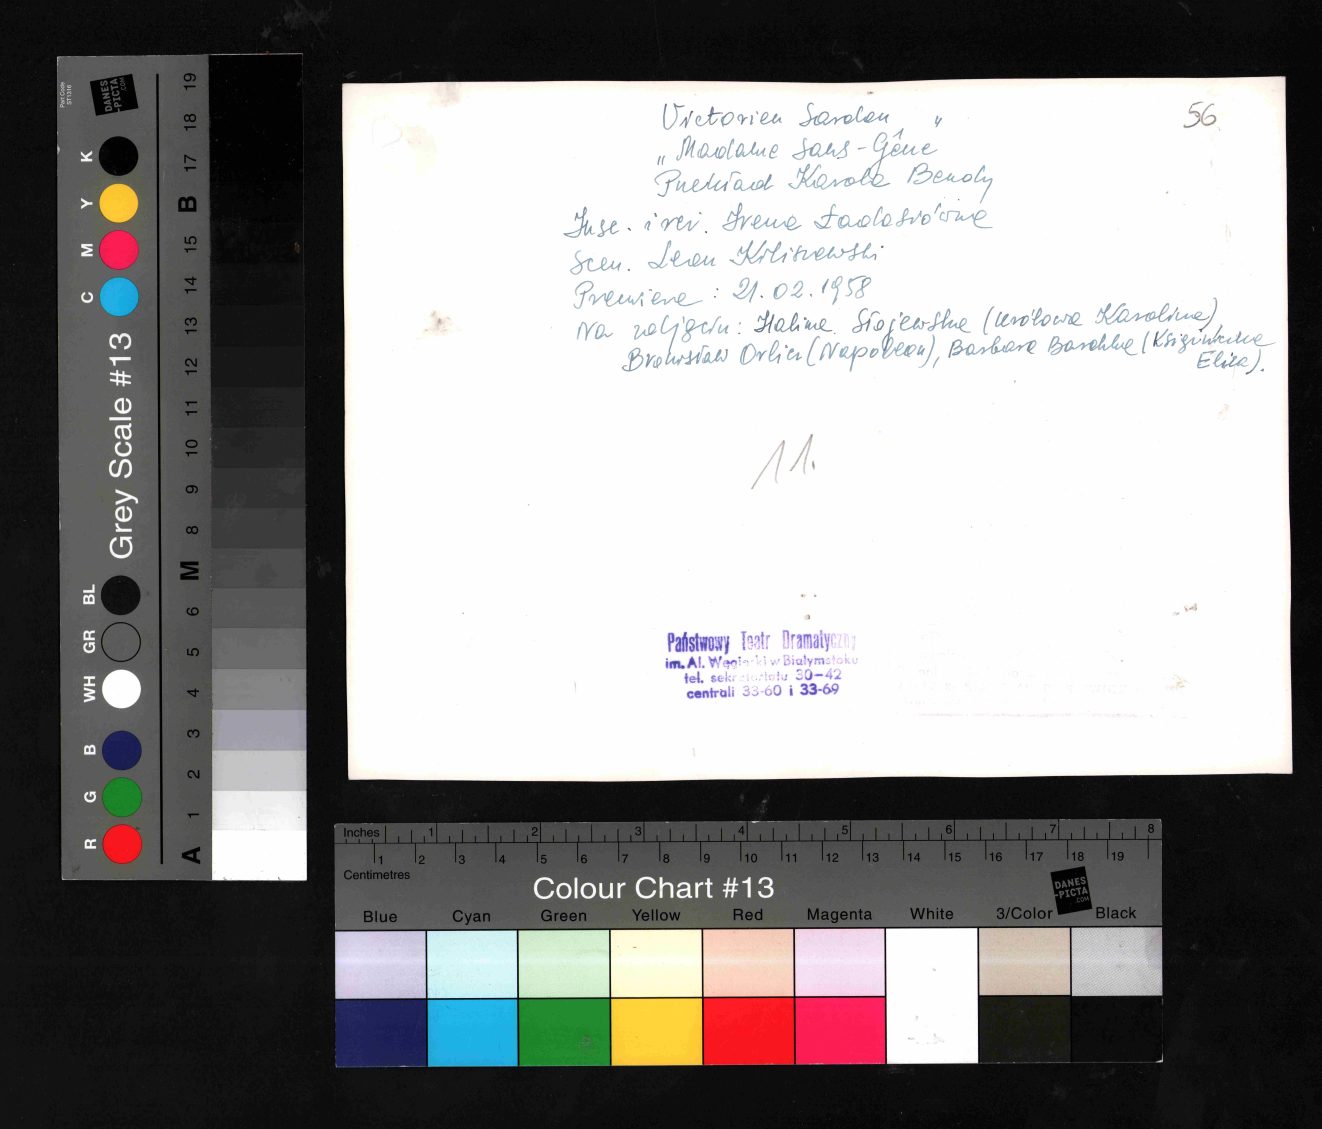 Victorien Sardou "
„Madame Sans-Gêne
Przekład Karola Bendy
Insc. i reż. Irena Ładosiówna
Scen. Leon Kiliszewski
Premiera: 21.02.1958
Na zdjęciu: Halina Słojewska (królowa Karolina)
Bronisław Orlicz (Napoleon), Barbara Barchlna (Księżniczka
Eliza).
56
11.
Państwowy Teatr Dramatyczny
im. Al. Węgierki w Białymstoku
tel. sekretariatu 30-42
centrali 33-60 i 33-69
Part Code
ST1316
DANES
-PICTA
.COM
Grey Scale #13
R G B WH GR BL C M Y K
A 1 2 3 4 5 6 M 8 9 10 11 12 13 14 15 B 17 18 19
Inches 1 2 3 4 5 6 7 8
1 2 3 4 5 6 7 8 9 10 11 12 13 14 15 16 17 18 19
Centimetres
Colour Chart #13
DANES
-PICTA
.COM
Blue Cyan Green Yellow Red Magenta White 3/Color Black